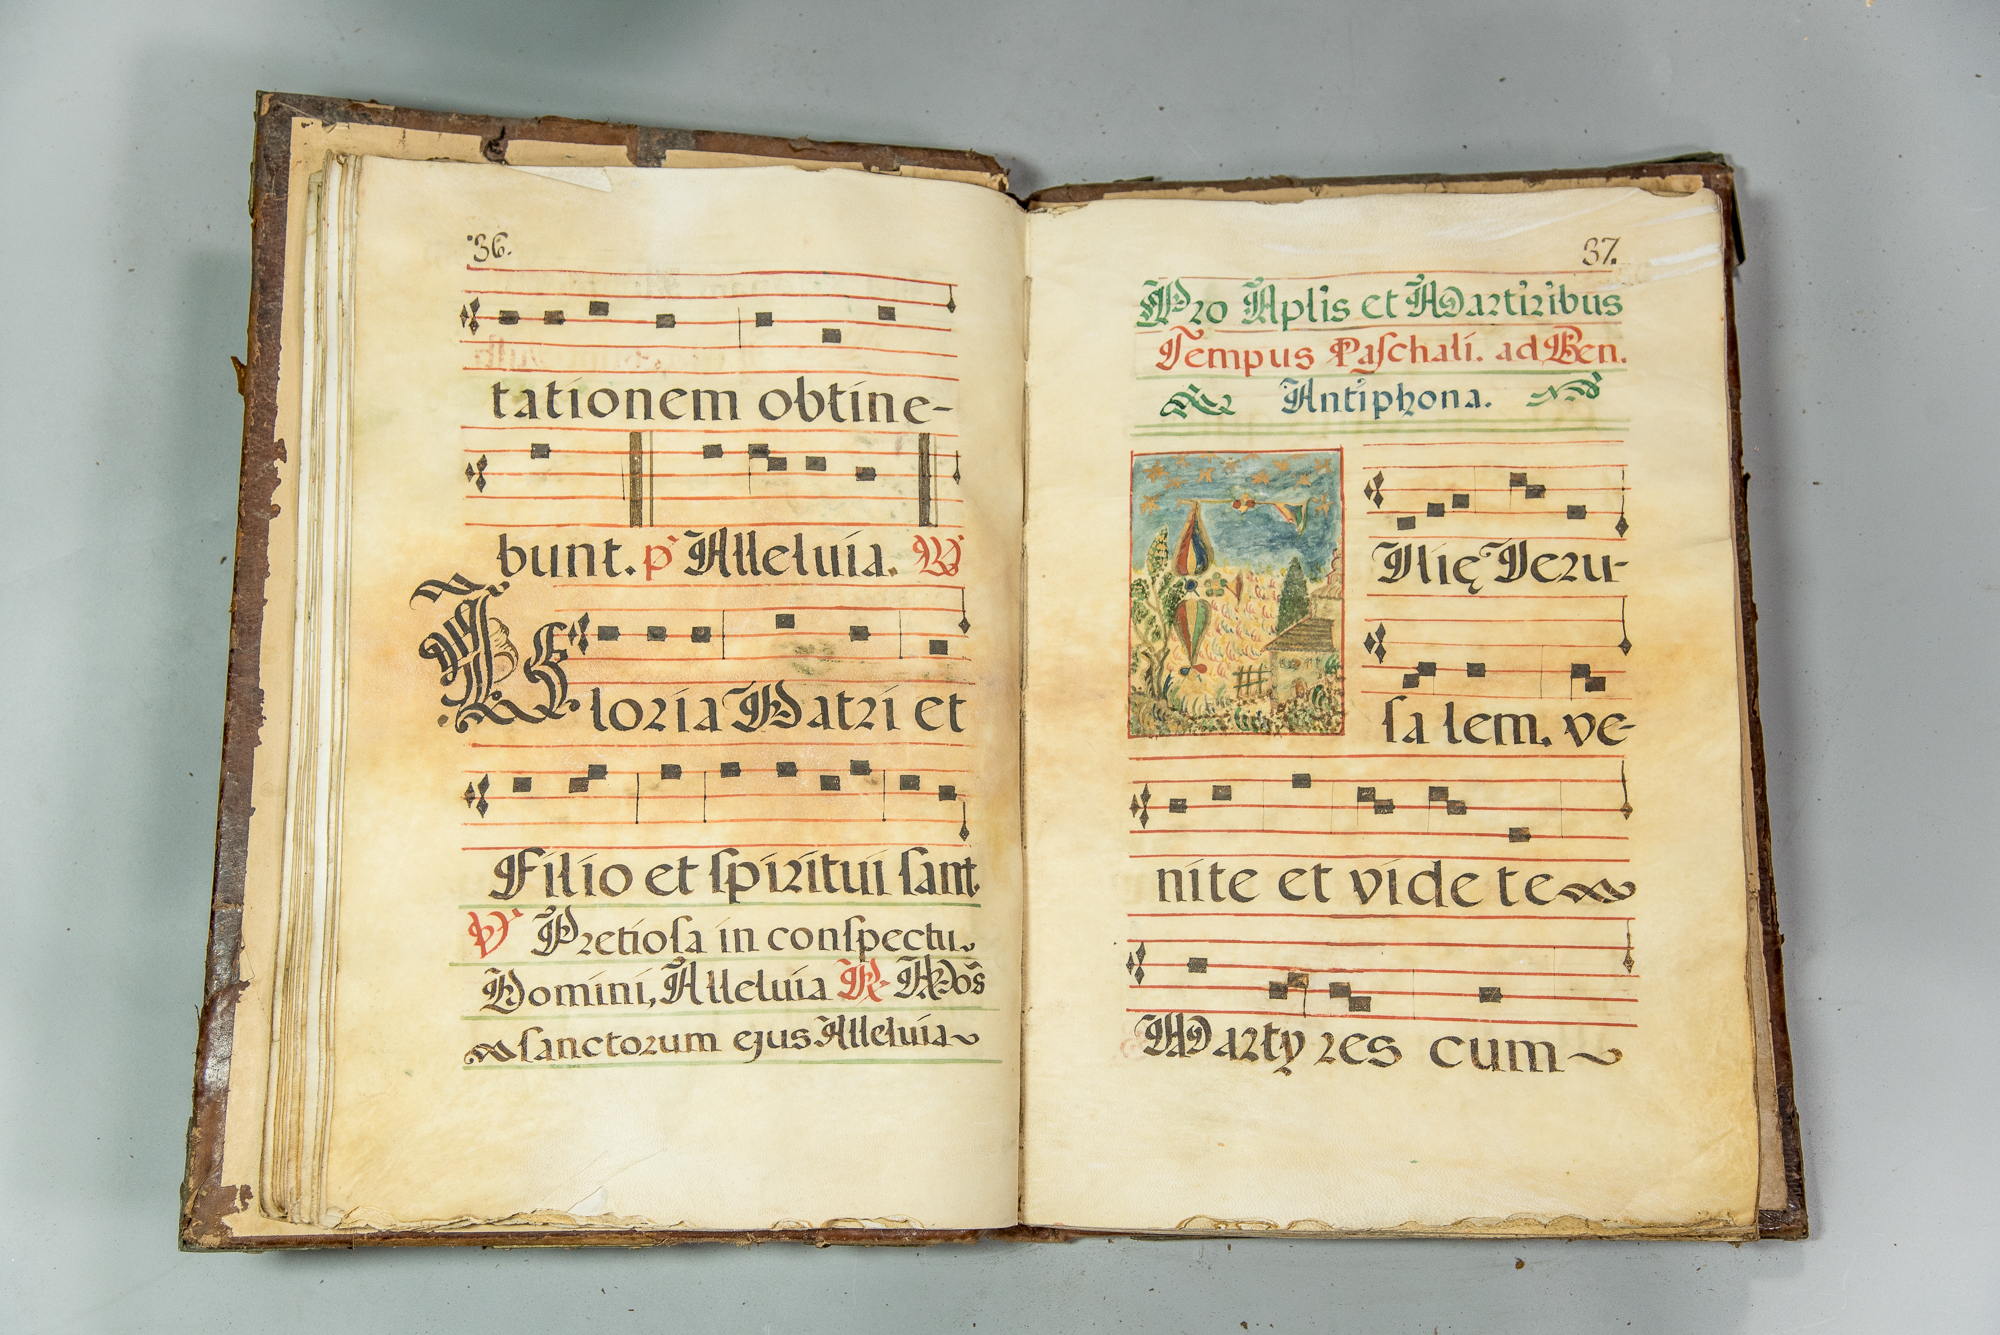 36.
tationem obtine-
bunt. p̃ Alleluia. ℣
Gloria Patri et
Filio et spiritui sant.
℣ Pretiosa in conspectu
Domini, Alleluia ℟. Mõs
sanctorum ejus Alleluia
37.
Pro Aplis et Martiribus
Tempus Paschali. ad Ben.
Antiphona.
Ilię Jeru-
salem. ve-
nite et videte
Martyres cum